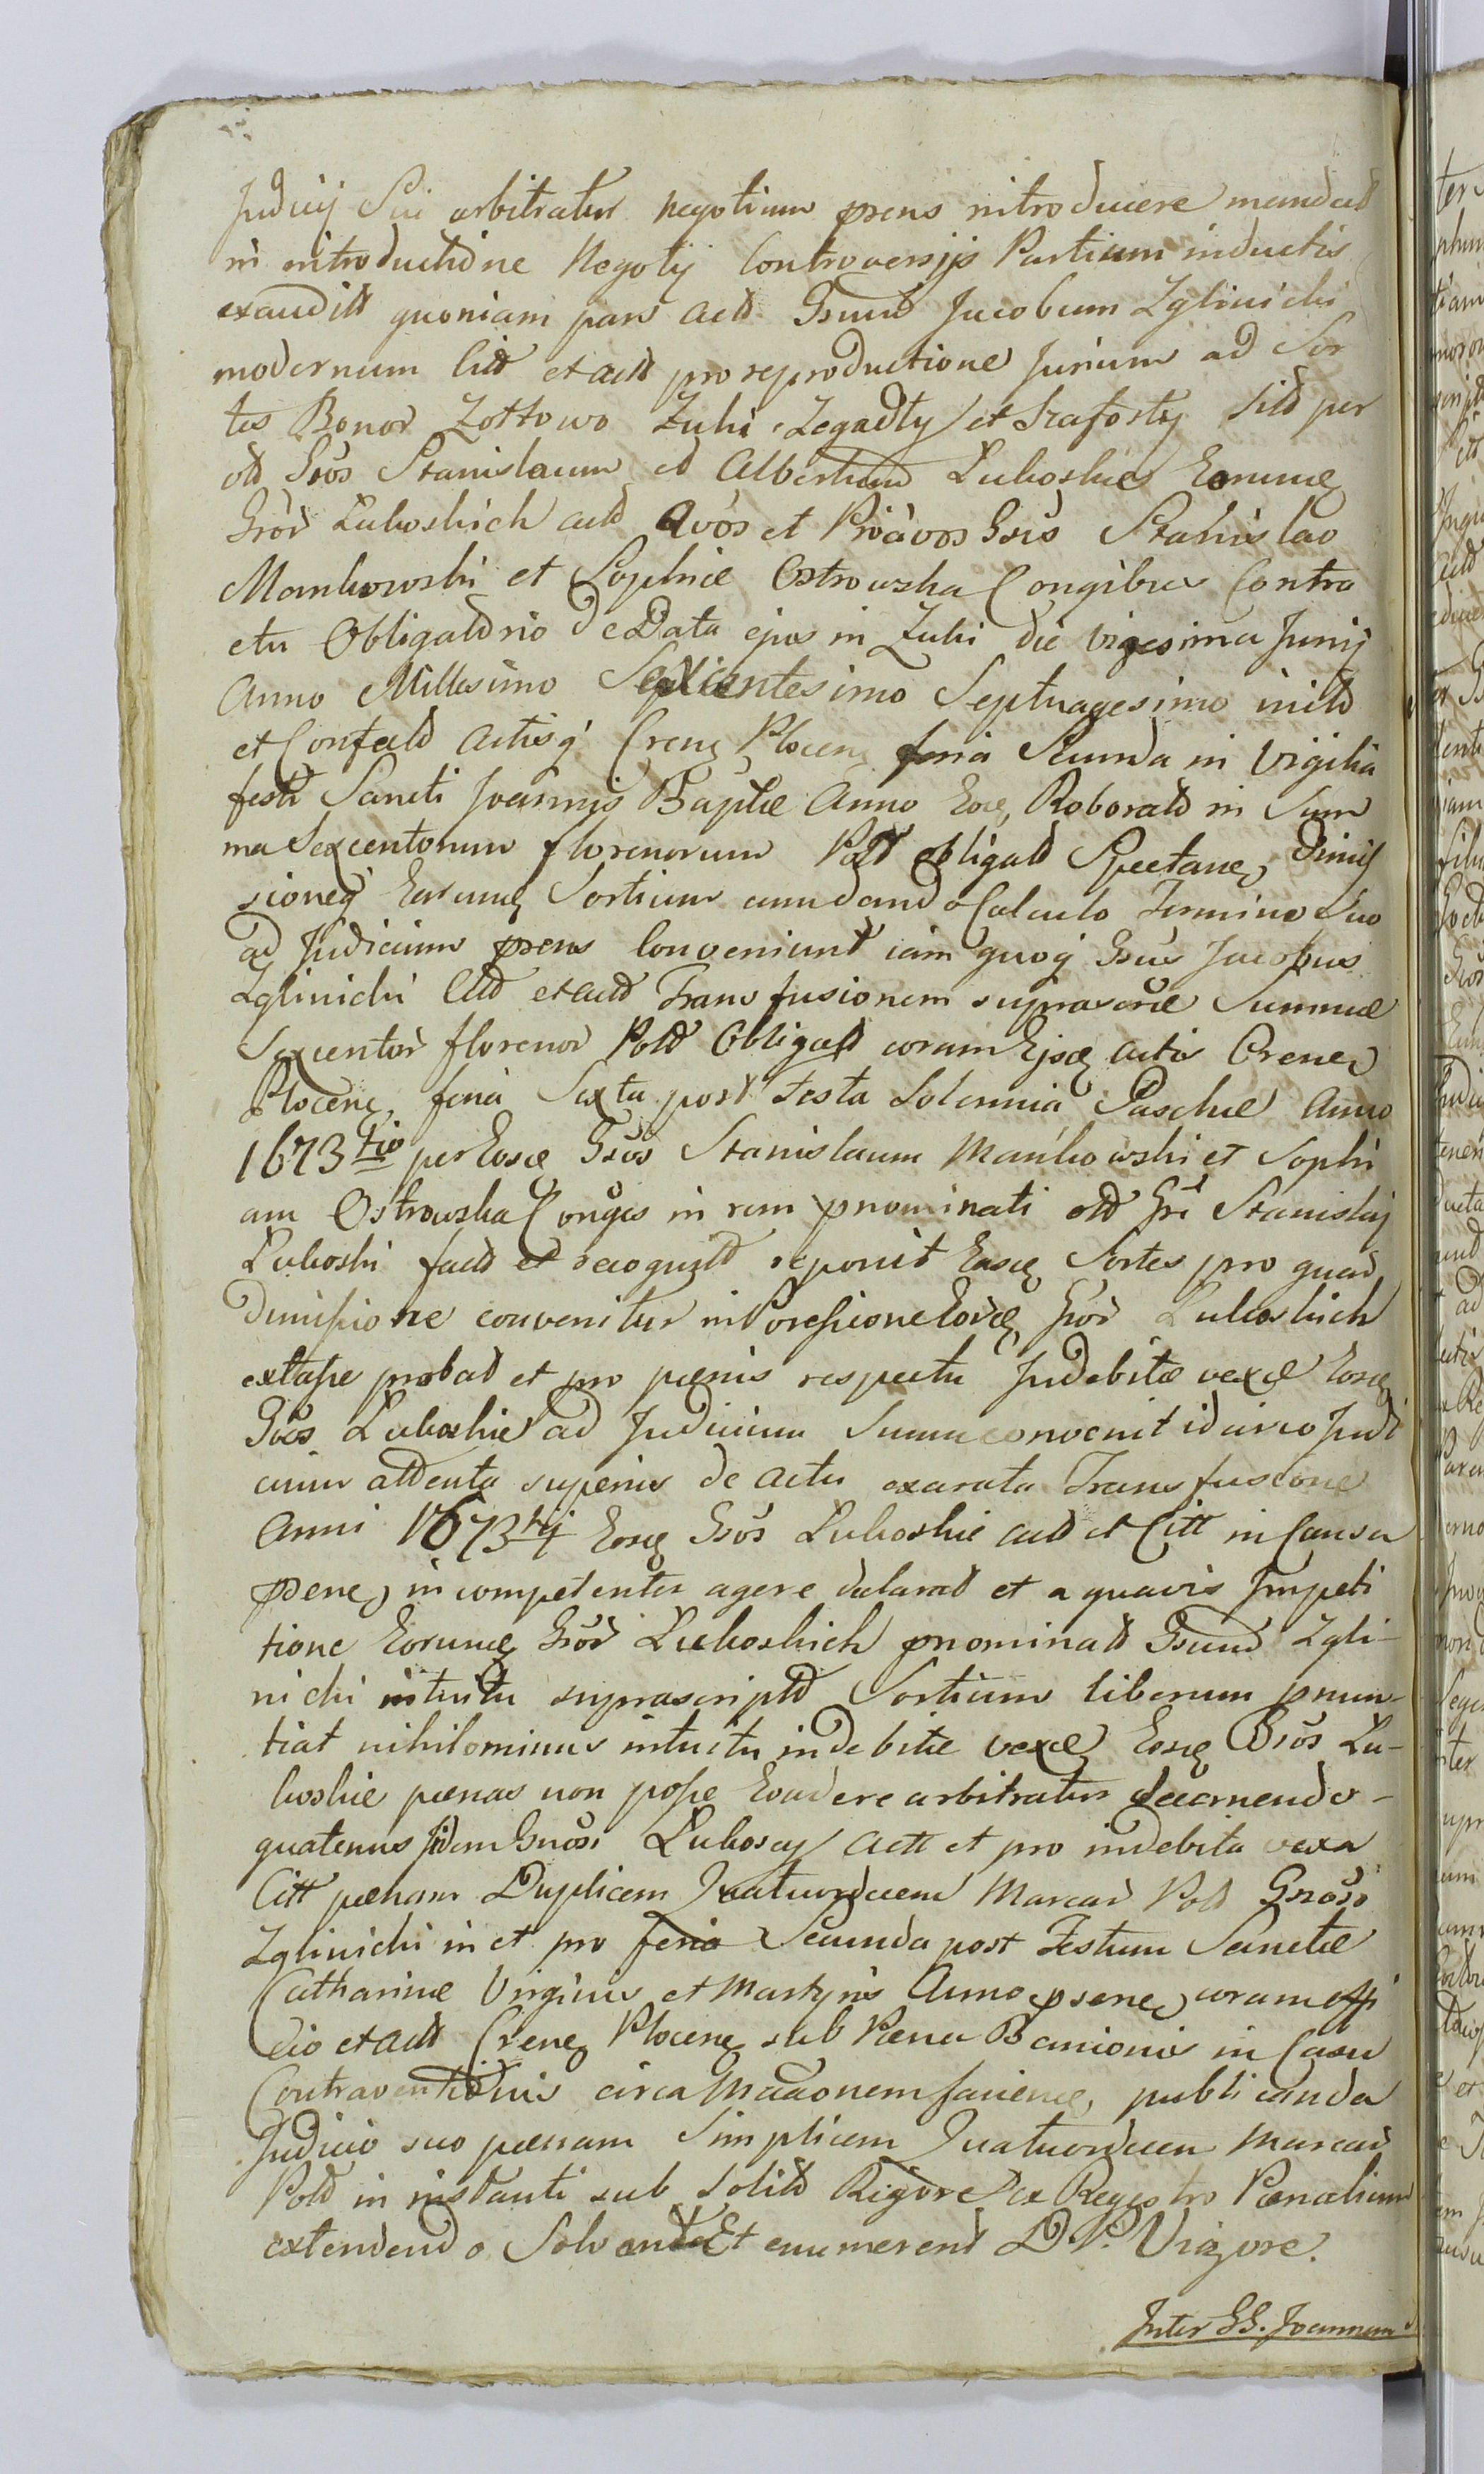 Judicij Sui arbitratur negotium prens introducere mandat
in introductione Negotij Controversijs Partium inductis
exaudit quoniam pars act Gsum Jacobum Zglinicki
modernum Citt et act pro reproductione Jurium ad Sor
tes Bonor Zottowo Żuki, Zegadły et Szaforty sit per
ol Gsos Stanislaum et Albertum Lukoskie Eorumq
Gsor Lukoskich act Avos et Proavos Gsis Stanislao
Mankowski et Sophiæ Ostrowska Congibus Contra
ctu Obligatorio de Data ejus in Żuki die Vigesima Junij
Anno Millesimo Sexcentesimo Septuagesimo init
et Confect Actisq Crenq Plocenq feria Secunda in Vigilia
festi Sancti Joannis Baptæ Anno Eoq Roborat in Sum
ma Sexcentorum florenorum Pold obligat Spectaneq Dimis
sioneq Earumq Sortium amudando Calculo Termino Suo
ad Judicium prens conveniunt iam quoq Gsus Jacobus
Zglinicki Citt et act Transfusionem suprascrœ Summæ
Sexcentor florenor Pold Obligat coram Ejsq actis Creneq
Plocenq feria Sexta post Festa Solemnia Paschæ Anno
1673tio per Eosq Gsos Stanislaum Mańkowski et Sophi
am Ostrowska Conges in rem pnominati old Gsi Stanislaj
Lukoski fact et recognit reponit Easq Sortes pro quar
Dimissione convenitur in Possessione Eorq Gsor Lukoskich
extasse probat et pro pœnis respectu Indebitæ vexæ Eosq
Gsos Lukoskie ad Judicium Suum convenit idcirco Judi
cium attenta superius de actu exarata Transfusione
Anni 1673tij Eosq Gsos Lukoskie act et Citt in Causa
psenq incompetenter agere declarat et a quavis Impeti
tione Eorumq Gsor Lukoskich pnominat Gsum Zgli-
nicki intuitu suprascript Sortium liberum pnun-
tiat nihilominus intuitu indebitæ vexæ Eosq Gsos Lu-
koskie pœnas non posse Evadere arbitratur decernendo-
quatenus Jidem Gnosi Lukoscy Actt et pro indebita vexa
Citt pœnam Duplicem Quatuordecem Marcar Pold Gnoso
Zglinicki in et pro feria Secunda post Festum Sanctæ
Catharinæ Virginis et Martyris Anno psenq coram offi
cio et act Crenq Plocenq sub Pœna Banionis in Casu
Contraventionis circa Maaonem farienq publicanda
Judicio suo pœnam Simplicem Quatuordecem Marcar
Pold in instanti sub Solit Rigore ex Registro Pœnalium
extendendo Solvant Et enumerent D.P. Vigore.
Inter GG. Joannem